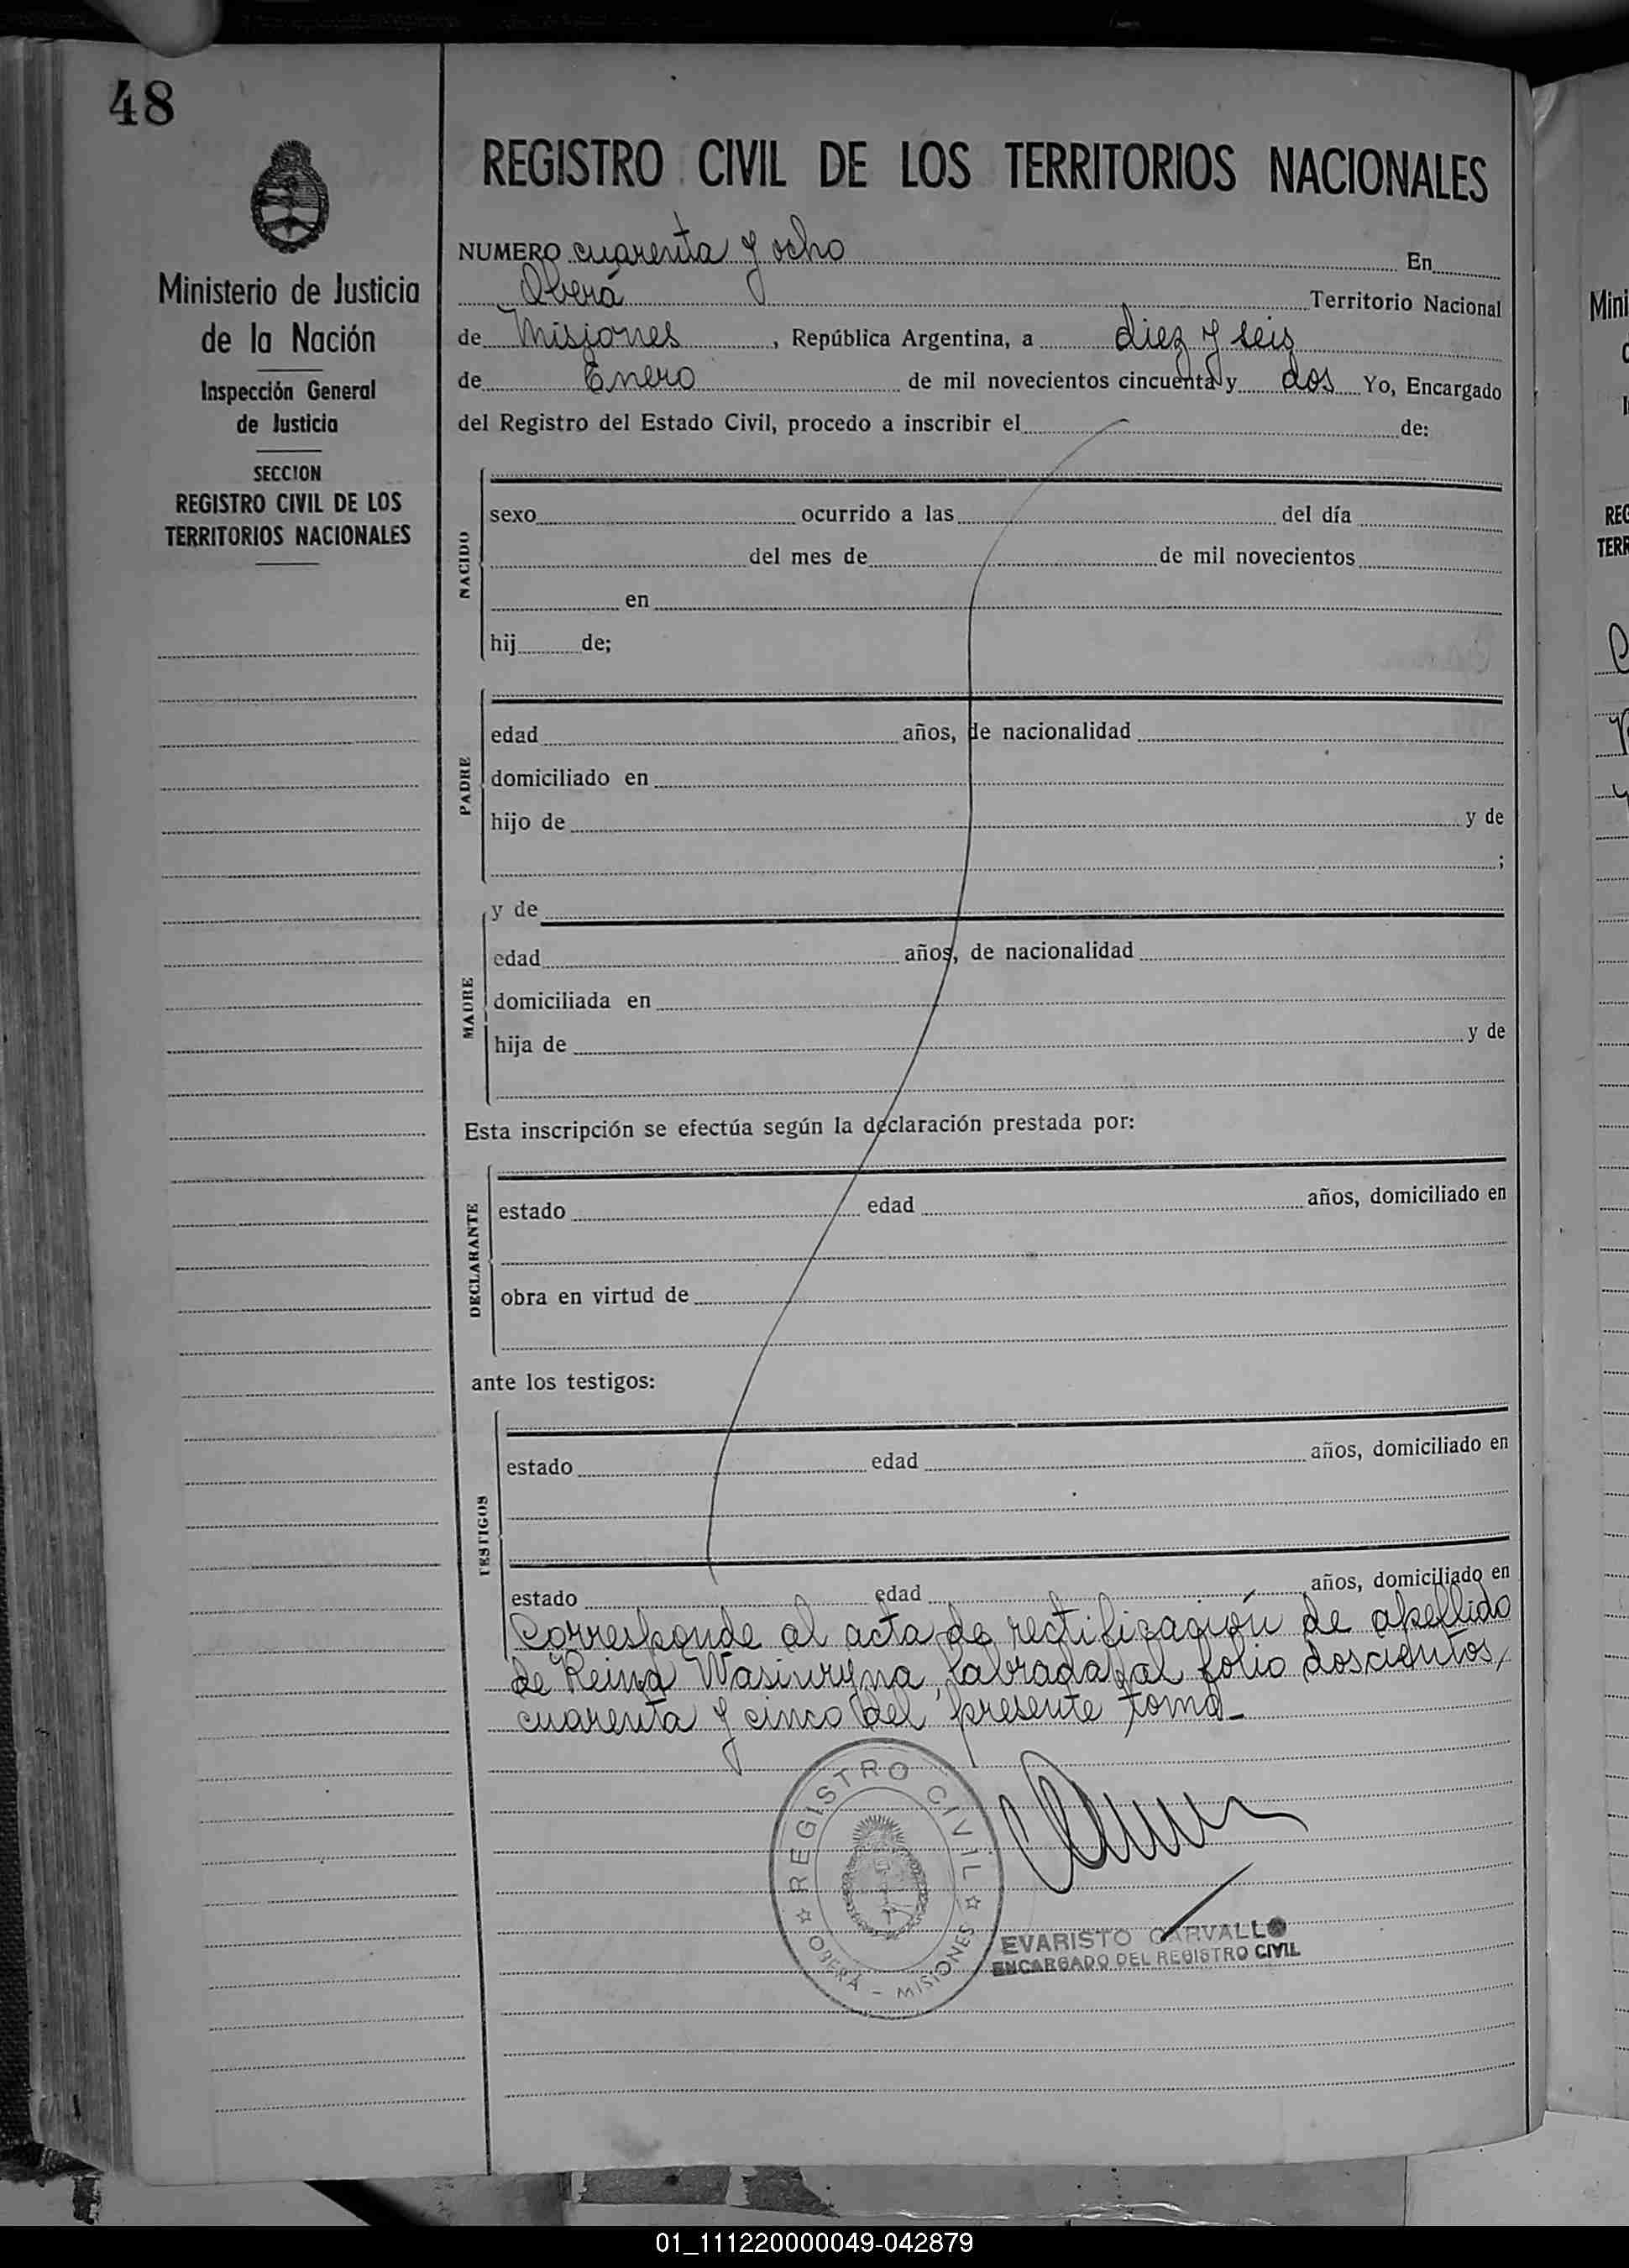 48
Ministerio de Justicia
de la Nación
Inspección General
de Justicia
SECCION
REGISTRO CIVIL DE LOS
TERRITORIOS NACIONALES
REGISTRO CIVIL DE LOS TERRITORIOS NACIONALES
NUMERO cuarenta y ocho En
Oberá Territorio Nacional
de Misiones, República Argentina, a diez y seis
de Enero de mil novecientos cincuenta y dos Yo, Encargado
del Registro del Estado Civil, procedo a inscribir el de:
NACIDO
sexo ocurrido a las del día
del mes de de mil novecientos
en
hij de;
PADRE
edad años, de nacionalidad
domiciliado en
hijo de y de
;
MADRE
y de
edad años, de nacionalidad
domiciliada en
hija de y de
Esta inscripción se efectúa según la declaración prestada por:
DECLARANTE
estado edad años, domiciliado en
obra en virtud de
ante los testigos:
TESTIGOS
estado edad años, domiciliado en
estado edad años, domiciliado en
Corresponde al acta de rectificación de apellido
de Reina Wasiuryna, labrada al folio doscientos
cuarenta y cinco del presente tomo.-
REGISTRO CIVIL
OBERÁ - MISIONES
EVARISTO CARVALLO
ENCARGADO DEL REGISTRO CIVIL
01_111220000049-042879